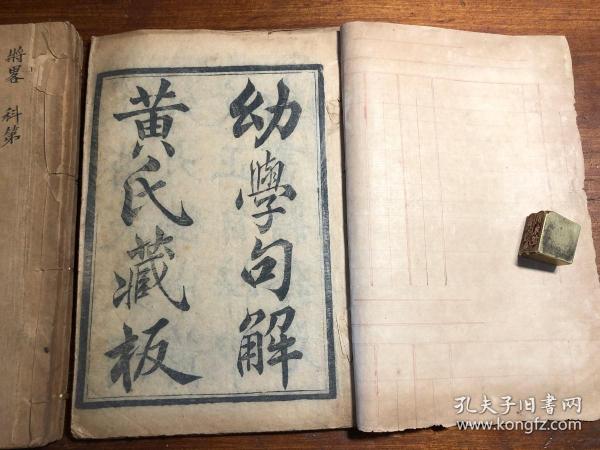 幼學句解
黄氏藏板
將畧 科第
孔夫子旧书网
www.kongfz.com